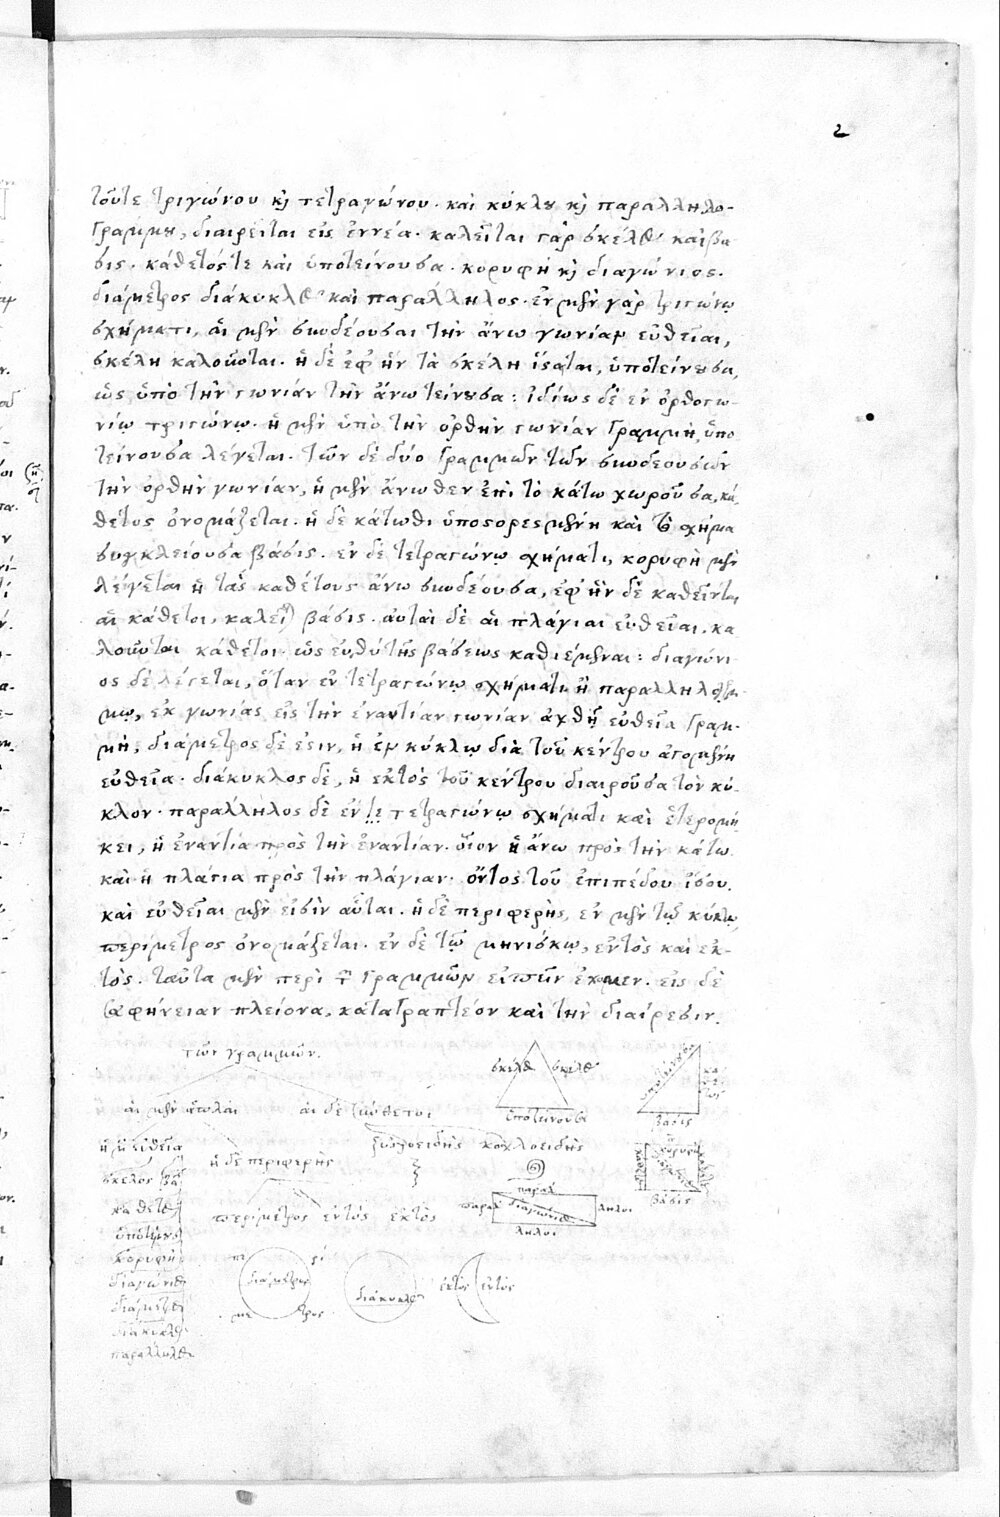 2
τοῦτε τριγώνου κὶ τετραγώνου. καὶ κύκλου κὶ παραλληλο-
γράμμου, διαιρεῖται εἰς ἐννέα. καλεῖται γὰρ σκέλος καὶ βά
σις. κάθετός τε καὶ ὑποτείνουσα. κορυφὴ κὶ διαγώνιος.
διάμετρος διάκυκλος καὶ παράλληλος. ἐν μὲν γὰρ τριγώνῳ
σχήματι, αἱ μὲν συνδέουσαι τὴν ἄνω γωνίαν εὐθεῖαι,
σκέλη καλοῦνται. ἡ δὲ ἐφ' ἣν τὰ σκέλη ἵσαται, ὑποτείνουσα,
ὡς ὑπὸ τὴν γωνίαν τὴν ἄνω τείνουσα: ἰδίως δὲ ἐν ὀρθογω-
νίῳ τριγώνῳ. ἡ μὲν ὑπὸ τὴν ὀρθὴν γωνίαν γραμμὴ, ὑπο
τείνουσα λέγεται. τῶν δὲ δύο γραμμῶν τῶν συνδεουσῶν
τὴν ὀρθὴν γωνίαν, ἡ μὲν ἄνωθεν ἐπὶ τὸ κάτω χωροῦσα, κά
θετος ὀνομάζεται. ἡ δὲ κάτωθι ὑποσορεσμένη καὶ τὸ σχῆμα
συγκλείουσα βάσις. ἐν δὲ τετραγώνῳ σχήματι, κορυφὴ μὲν
λέγεται ἡ τὰς καθέτους ἄνω συνδέουσα, ἐφ' ἣν δὲ καθεῖνται
αἱ κάθετοι, καλεῖται βάσις. αὐταὶ δὲ αἱ πλάγιαι εὐθεῖαι, κα
λοῦνται κάθετοι. ὡς εὐθὺ τῆς βάσεως καθιέμεναι: διαγώνι-
ος δὲ λέγεται, ὅταν ἐν τετραγώνῳ σχήματι ἢ παραλληλογράμ-
μῳ, ἐκ γωνίας εἰς τὴν ἐναντίαν γωνίαν ἀχθῇ εὐθεῖα γραμ-
μὴ, διάμετρος δέ ἐσιν, ἡ ἐν κύκλῳ διὰ τοῦ κέντρου ἀγομένη
εὐθεῖα. διάκυκλος δὲ, ἡ ἐκτὸς τοῦ κέντρου διαιροῦσα τὸν κύ-
κλον. παράλληλος δὲ ἐν τετραγώνῳ σχήματι καὶ ἑτερομή
κει, ἡ ἐναντία πρὸς τὴν ἐναντίαν. οἷον ἡ ἄνω πρὸς τὴν κάτω
καὶ ἡ πλαγία πρὸς τὴν πλάγιαν. ὄντος τοῦ ἐπιπέδου ἴσου.
καὶ εὐθεῖαι μὲν εἰσὶν αὗται. ἡ δὲ περιφερὴς, ἐν μὲν τῷ κύκλῳ
περίμετρος ὀνομάζεται. ἐν δὲ τῷ μηνίσκῳ, ἐντὸς καὶ ἐκ-
τὸς. ταῦτα μὲν περὶ τῶν γραμμῶν εἰπεῖν ἔχομεν. εἰς δὲ
σαφήνειαν πλείονα, καταγραπτέον καὶ τὴν διαίρεσιν.
τῶν γραμμῶν.
αἱ μὲν ἁπλαῖ αἱ δὲ σύνθετοι
ἡ μὲν εὐθεῖα ἡ δὲ περιφερὴς κοχλοειδὴς
σκέλος βά
κάθετος
ὑποτείνουσα
κορυφὴ
διαγώνιος
διάμετρος
διάκυκλος
παράλληλος
περίμετρος ἐντὸς ἐκτὸς
σκέλος σκέλος
ὑποτείνουσα
ὑποτείνουσα κάθετος
βάσις
κορυφὴ
κάθετος
βάσις
παραλ
παραλ διαγώνιος ληλοι
ληλοι
πε ρί
διάμετρος
με τρος
διάκυκλος
ἐκτὸς ἐντὸς